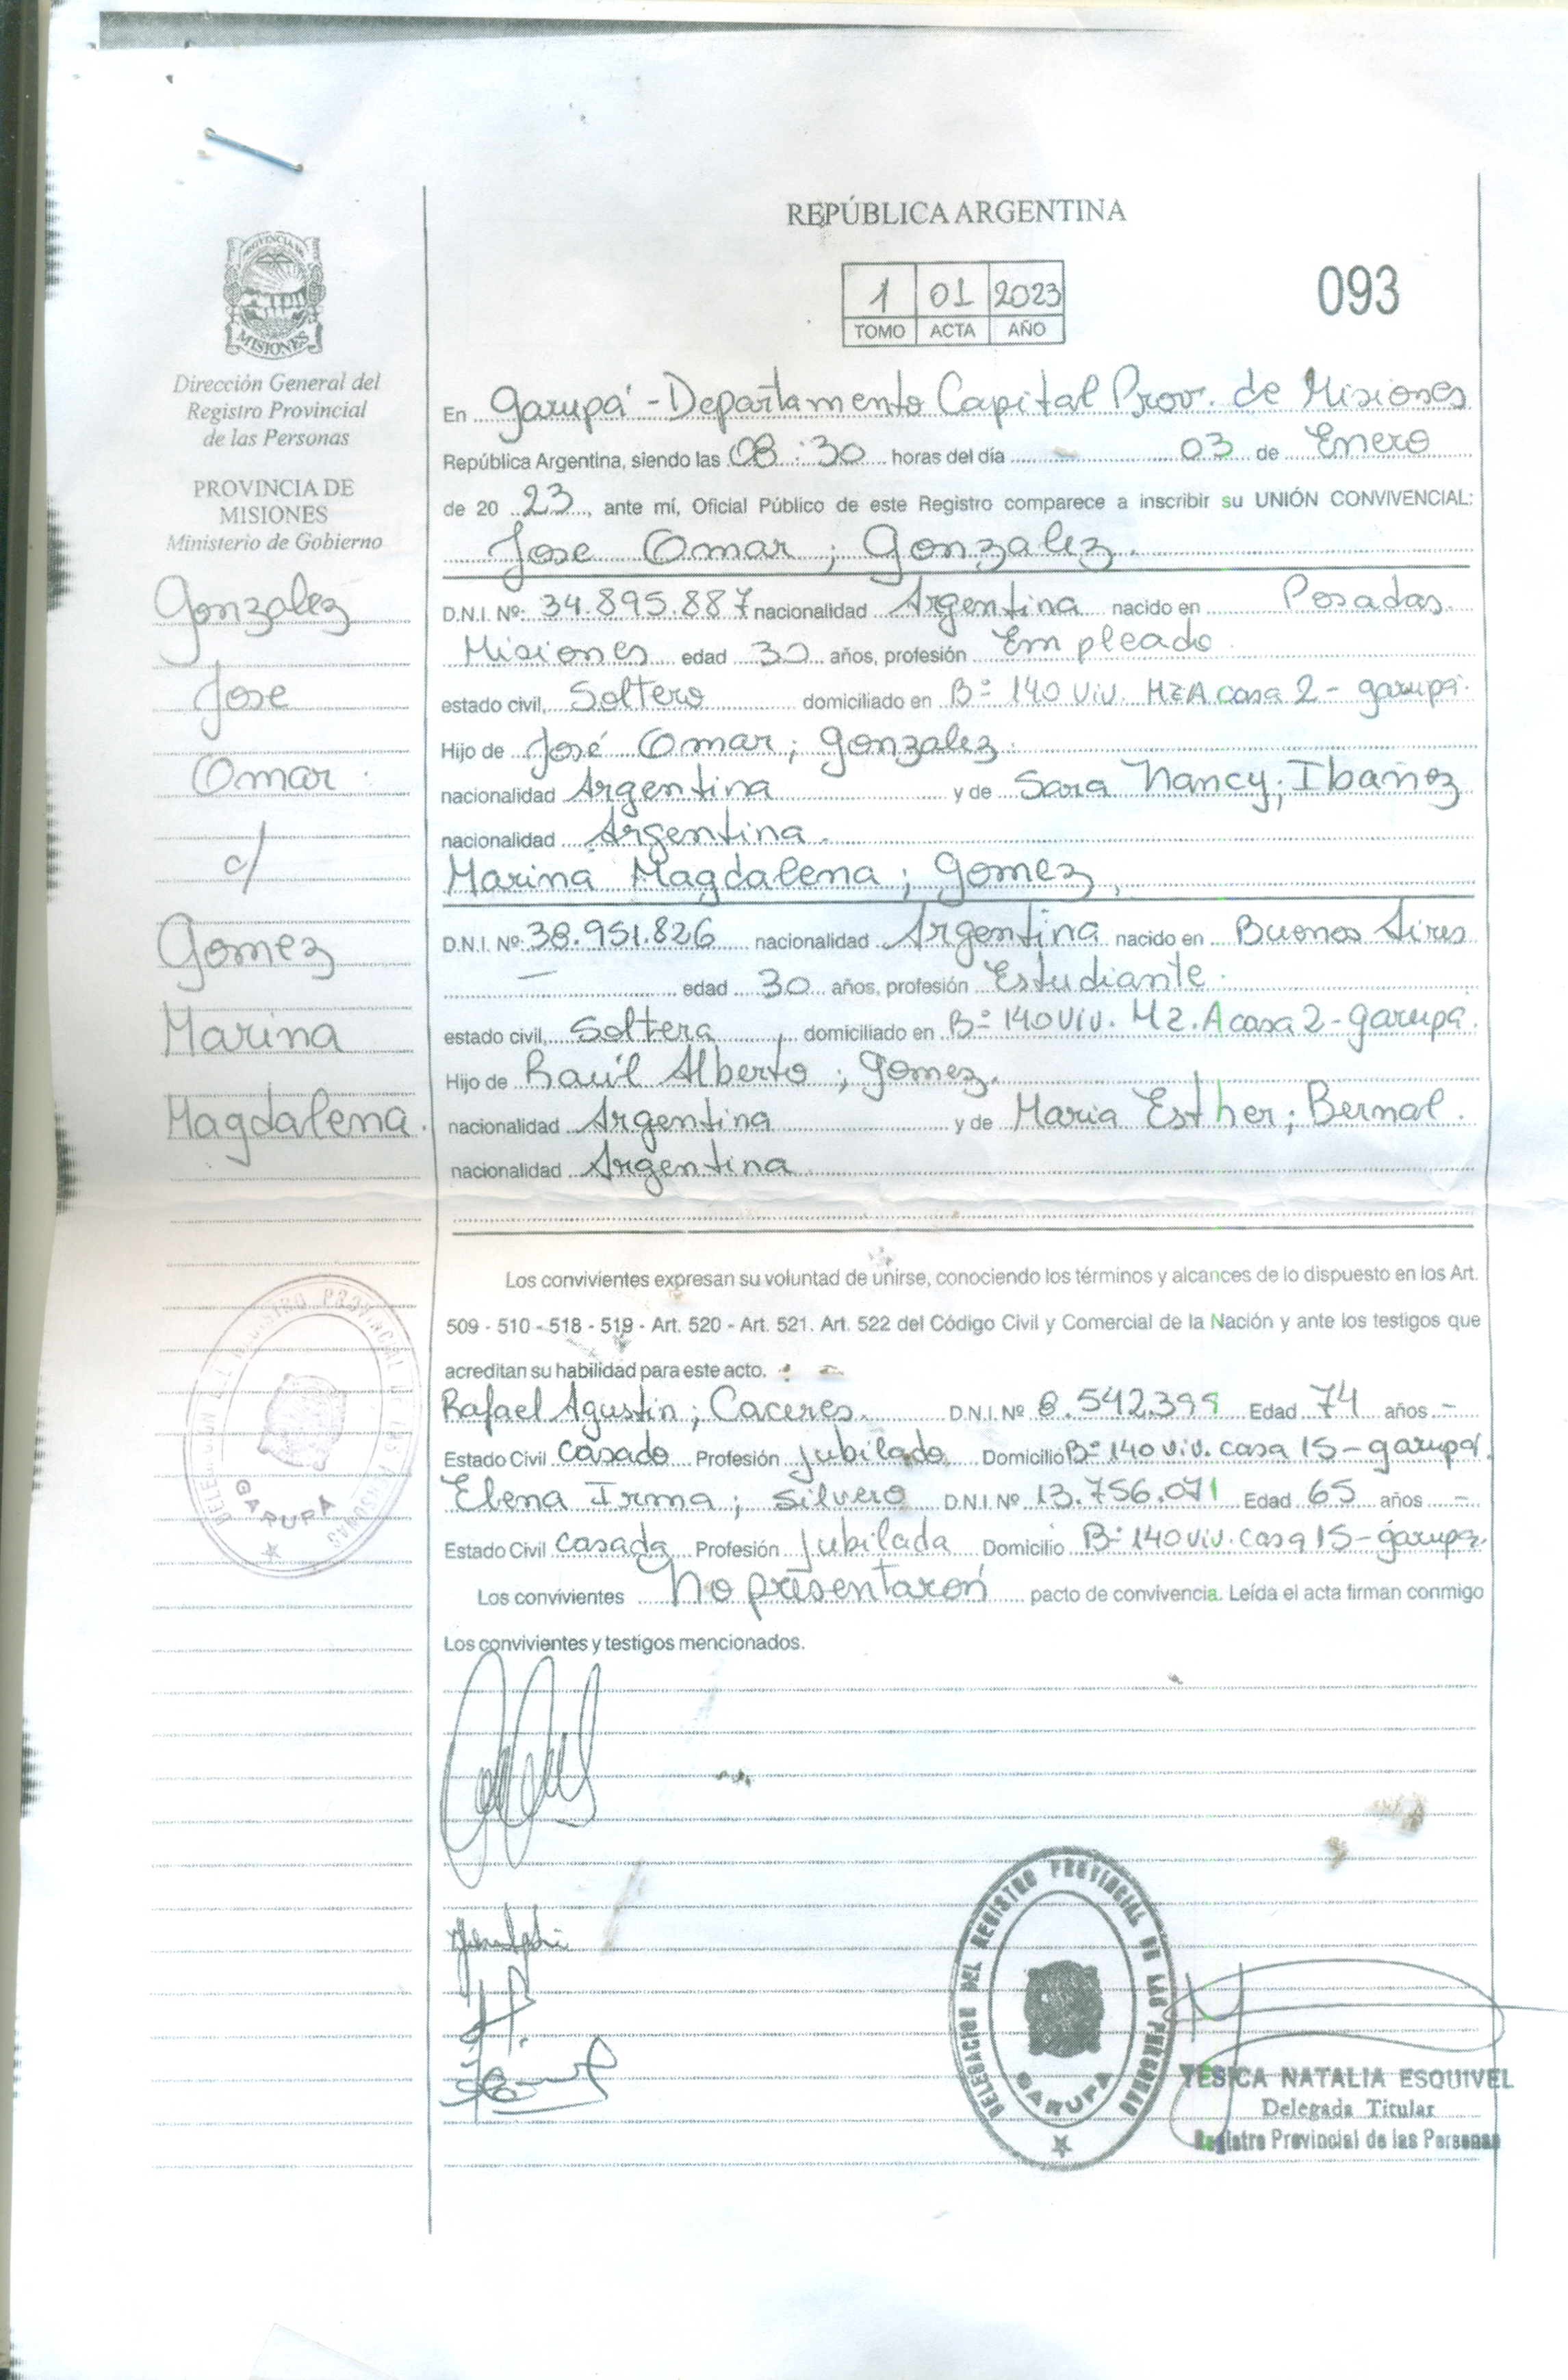 REPÚBLICA ARGENTINA
093
1 01 2023
TOMO ACTA AÑO
PROVINCIA DE
MISIONES
Dirección General del
Registro Provincial
de las Personas
PROVINCIA DE
MISIONES
Ministerio de Gobierno
Gonzalez
Jose
Omar
c/
Gomez
Marina
Magdalena.
En Garupá - Departamento Capital Prov. de Misiones
República Argentina, siendo las 08:30 horas del día 03 de Enero
de 20 23, ante mí, Oficial Público de este Registro comparece a inscribir su UNIÓN CONVIVENCIAL:
Jose Omar ; Gonzalez.
D.N.I. Nº: 34.895.887 nacionalidad Argentina nacido en Posadas
Misiones edad 30 años, profesión Empleado
estado civil, Soltero domiciliado en Bº 140 Viv. Mz A casa 2 - garupá.
Hijo de José Omar ; gonzalez.
nacionalidad Argentina y de Sara Nancy; Ibañez
nacionalidad Argentina.
Marina Magdalena ; gomez,
D.N.I. Nº: 38.951.826 nacionalidad Argentina nacido en Buenos Aires
— edad 30 años, profesión Estudiante.
estado civil, Soltera domiciliado en Bº 140 Viv. Mz. A casa 2 - garupá.
Hijo de Raúl Alberto ; gomez.
nacionalidad Argentina y de Maria Esther ; Bernal.
nacionalidad Argentina
Los convivientes expresan su voluntad de unirse, conociendo los términos y alcances de lo dispuesto en los Art.
509 - 510 - 518 - 519 - Art. 520 - Art. 521. Art. 522 del Código Civil y Comercial de la Nación y ante los testigos que
acreditan su habilidad para este acto.
Rafael Agustin ; Caceres. D.N.I. Nº 8.542.399 Edad 74 años -
Estado Civil casado Profesión jubilado Domicilio Bº 140 viv. casa 15 - garupá.
Elena Irma ; Silvero D.N.I. Nº 13.756.071 Edad 65 años -
Estado Civil casada Profesión jubilada Domicilio Bº 140 viv. casa 15 - garupá.
Los convivientes No presentaron pacto de convivencia. Leída el acta firman conmigo
Los convivientes y testigos mencionados.
DELEGACION DEL REGISTRO PROVINCIAL DE LAS PERSONAS
GARUPÁ
DELEGACION DEL REGISTRO PROVINCIAL DE LAS PERSONAS
GARUPA
YESICA NATALIA ESQUIVEL
Delegada Titular
Registro Provincial de las Personas